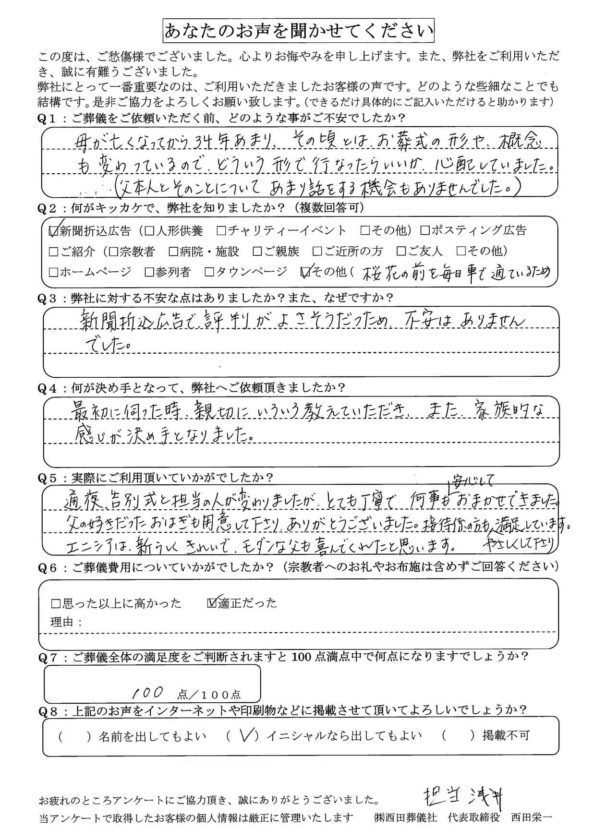 あなたのお声を聞かせてください
この度は、ご愁傷様でございました。心よりお悔やみを申し上げます。また、弊社をご利用いただ
き、誠に有難うございました。
弊社にとって一番重要なのは、ご利用いただきましたお客様の声です。どのような些細なことでも
結構です。是非ご協力をよろしくお願い致します。(できるだけ具体的にご記入いただけると助かります)
Q1：ご葬儀をご依頼いただく前、どのような事がご不安でしたか？
母が亡くなってから34年あまり、その頃とは、お葬式の形や、概念
も変わっているので、どういう形で行なったらいいか、心配していました。
....(父本人とそのことについてあまり話をする機会もありませんでした。)
Q2：何がキッカケで、弊社を知りましたか？（複数回答可）
☑新聞折込広告（□人形供養 □チャリティーイベント □その他）□ポスティング広告
□ご紹介（□宗教者 □病院・施設 □ご親族 □ご近所の方 □ご友人 □その他）
□ホームページ □参列者 □タウンページ ☑その他( 桜花の前を毎日車で通ているため
Q3：弊社に対する不安な点はありましたか？また、なぜですか？
新聞折込広告で評判がよさそうだったため、不安はありません
でした。
Q4：何が決め手となって、弊社へご依頼頂きましたか？
最初に伺った時、親切にいろいろ教えていただき、また、家族的な
感じが決め手となりました。
Q5：実際にご利用頂いていかがでしたか？
通夜、告別式と担当の人が変わりましたが、とても丁寧で、何事も安心しておまかせできました。
父の好きだったおはぎも用意して下さり、ありがとうございました。接待係の方も満足しています。
エニシアは、新らしくきれいで、モダンな父も喜んでくれたと思います。 やさしくして下さり
Q6：ご葬儀費用についていかがでしたか？（宗教者へのお礼やお布施は含めずご回答ください）
□思った以上に高かった ☑適正だった
理由：
Q7：ご葬儀全体の満足度をご判断されますと100点満点中で何点になりますでしょうか？
100 点/100点
Q8：上記のお声をインターネットや印刷物などに掲載させて頂いてよろしいでしょうか？
（ ）名前を出してもよい （✓）イニシャルなら出してもよい （ ）掲載不可
お疲れのところアンケートにご協力頂き、誠にありがとうございました。 担当 浅井
当アンケートで取得したお客様の個人情報は厳正に管理いたします ㈱西田葬儀社 代表取締役 西田栄一